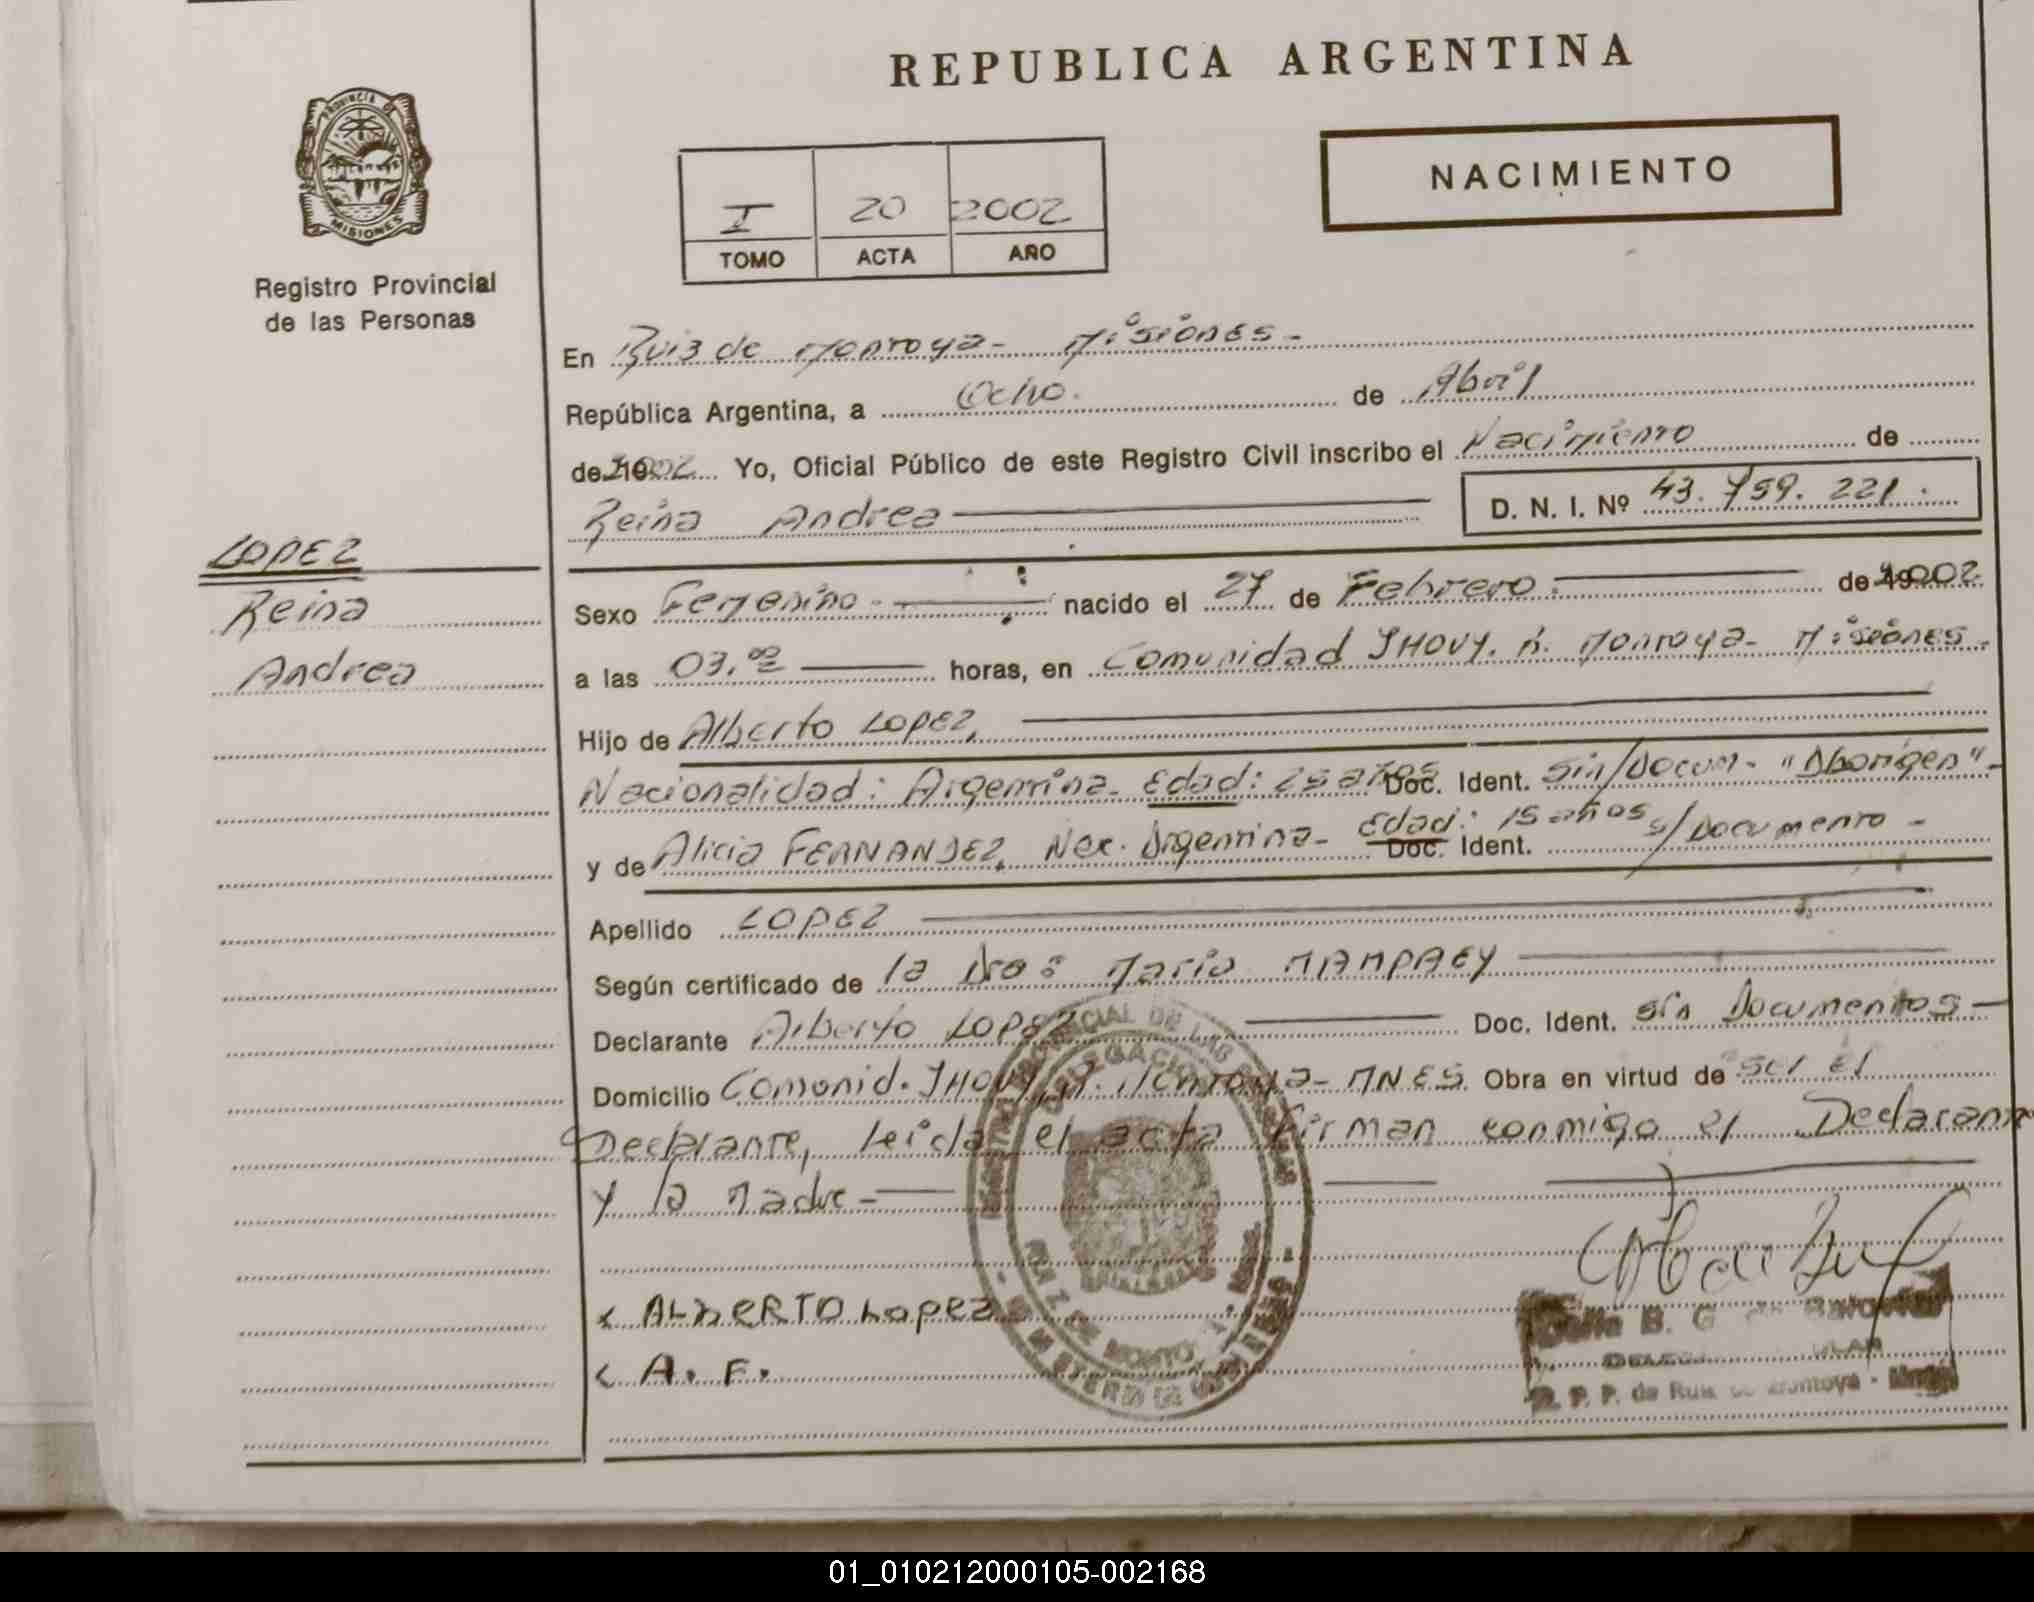 REPUBLICA ARGENTINA
NACIMIENTO
PROVINCIA DE
MISIONES
Registro Provincial
de las Personas
I 20 2002
TOMO ACTA AÑO
En Ruiz de Montoya - Misiones -
República Argentina, a Ocho. de Abril
de 2002 Yo, Oficial Público de este Registro Civil inscribo el Nacimiento de
Reina Andrea
D. N. I. Nº 43. 759. 221.
LOPEZ
Reina
Andrea
Sexo Femenino - nacido el 27 de Febrero. de 2002
a las 03,00 horas, en Comunidad JHOVY. R. Montoya - Misiones -
Hijo de Alberto LOPEZ,
Nacionalidad: Argentina - Edad: 25 años Doc. Ident. sin/Docum - "Aborigen" -
y de Alicia FERNANDEZ, Nac. Argentina - Edad: 15 años Doc. Ident. s/Documento -
Apellido LOPEZ
Según certificado de la Dra: María MAMPAEY
Declarante Alberto LOPEZ Doc. Ident. sin Documentos -
Domicilio Comunid. JHOVY R. Montoya - MNES Obra en virtud de ser el
Declarante, leída el acta firman conmigo el Declarante
y la Madre -
x ALBERTO Lopez
x A. F.
DELEGACION
B. G. de
R. P. P. de Ruiz de Montoya -
01_010212000105-002168